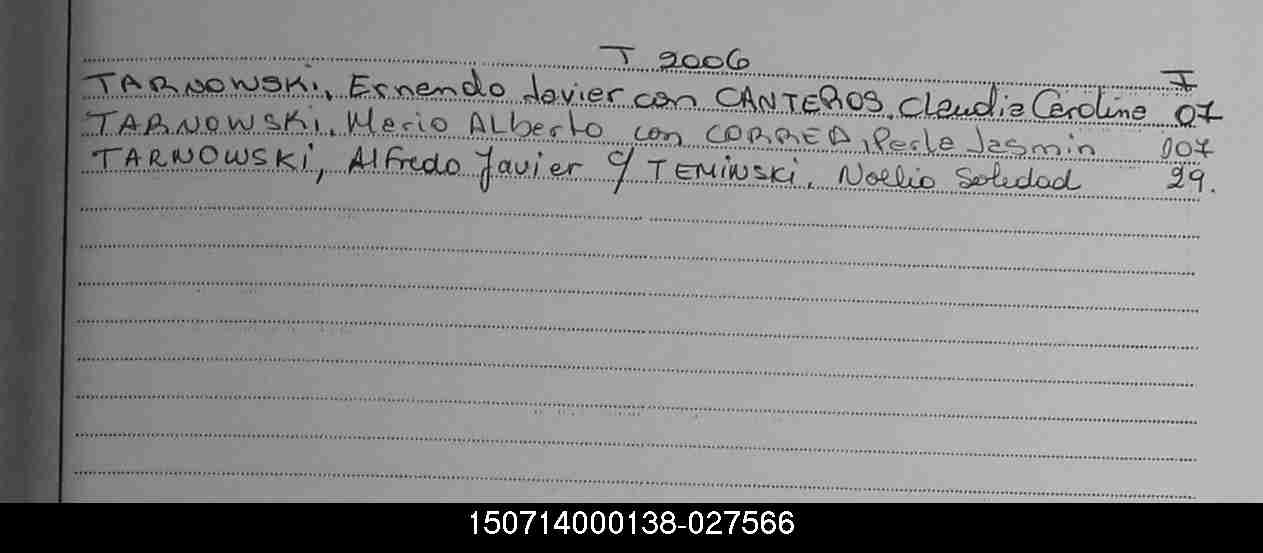 T 2006
I
TARNOWSKi, Ernendo Javier con CANTEROS, Claudia Caroline 07
TARNOWSKi, Mario Alberto con CORREA, Perla Jasmin 007
TARNOWSKi, Alfredo Javier c/ TEMiNSKi, Noelio Soledad 29.
150714000138-027566